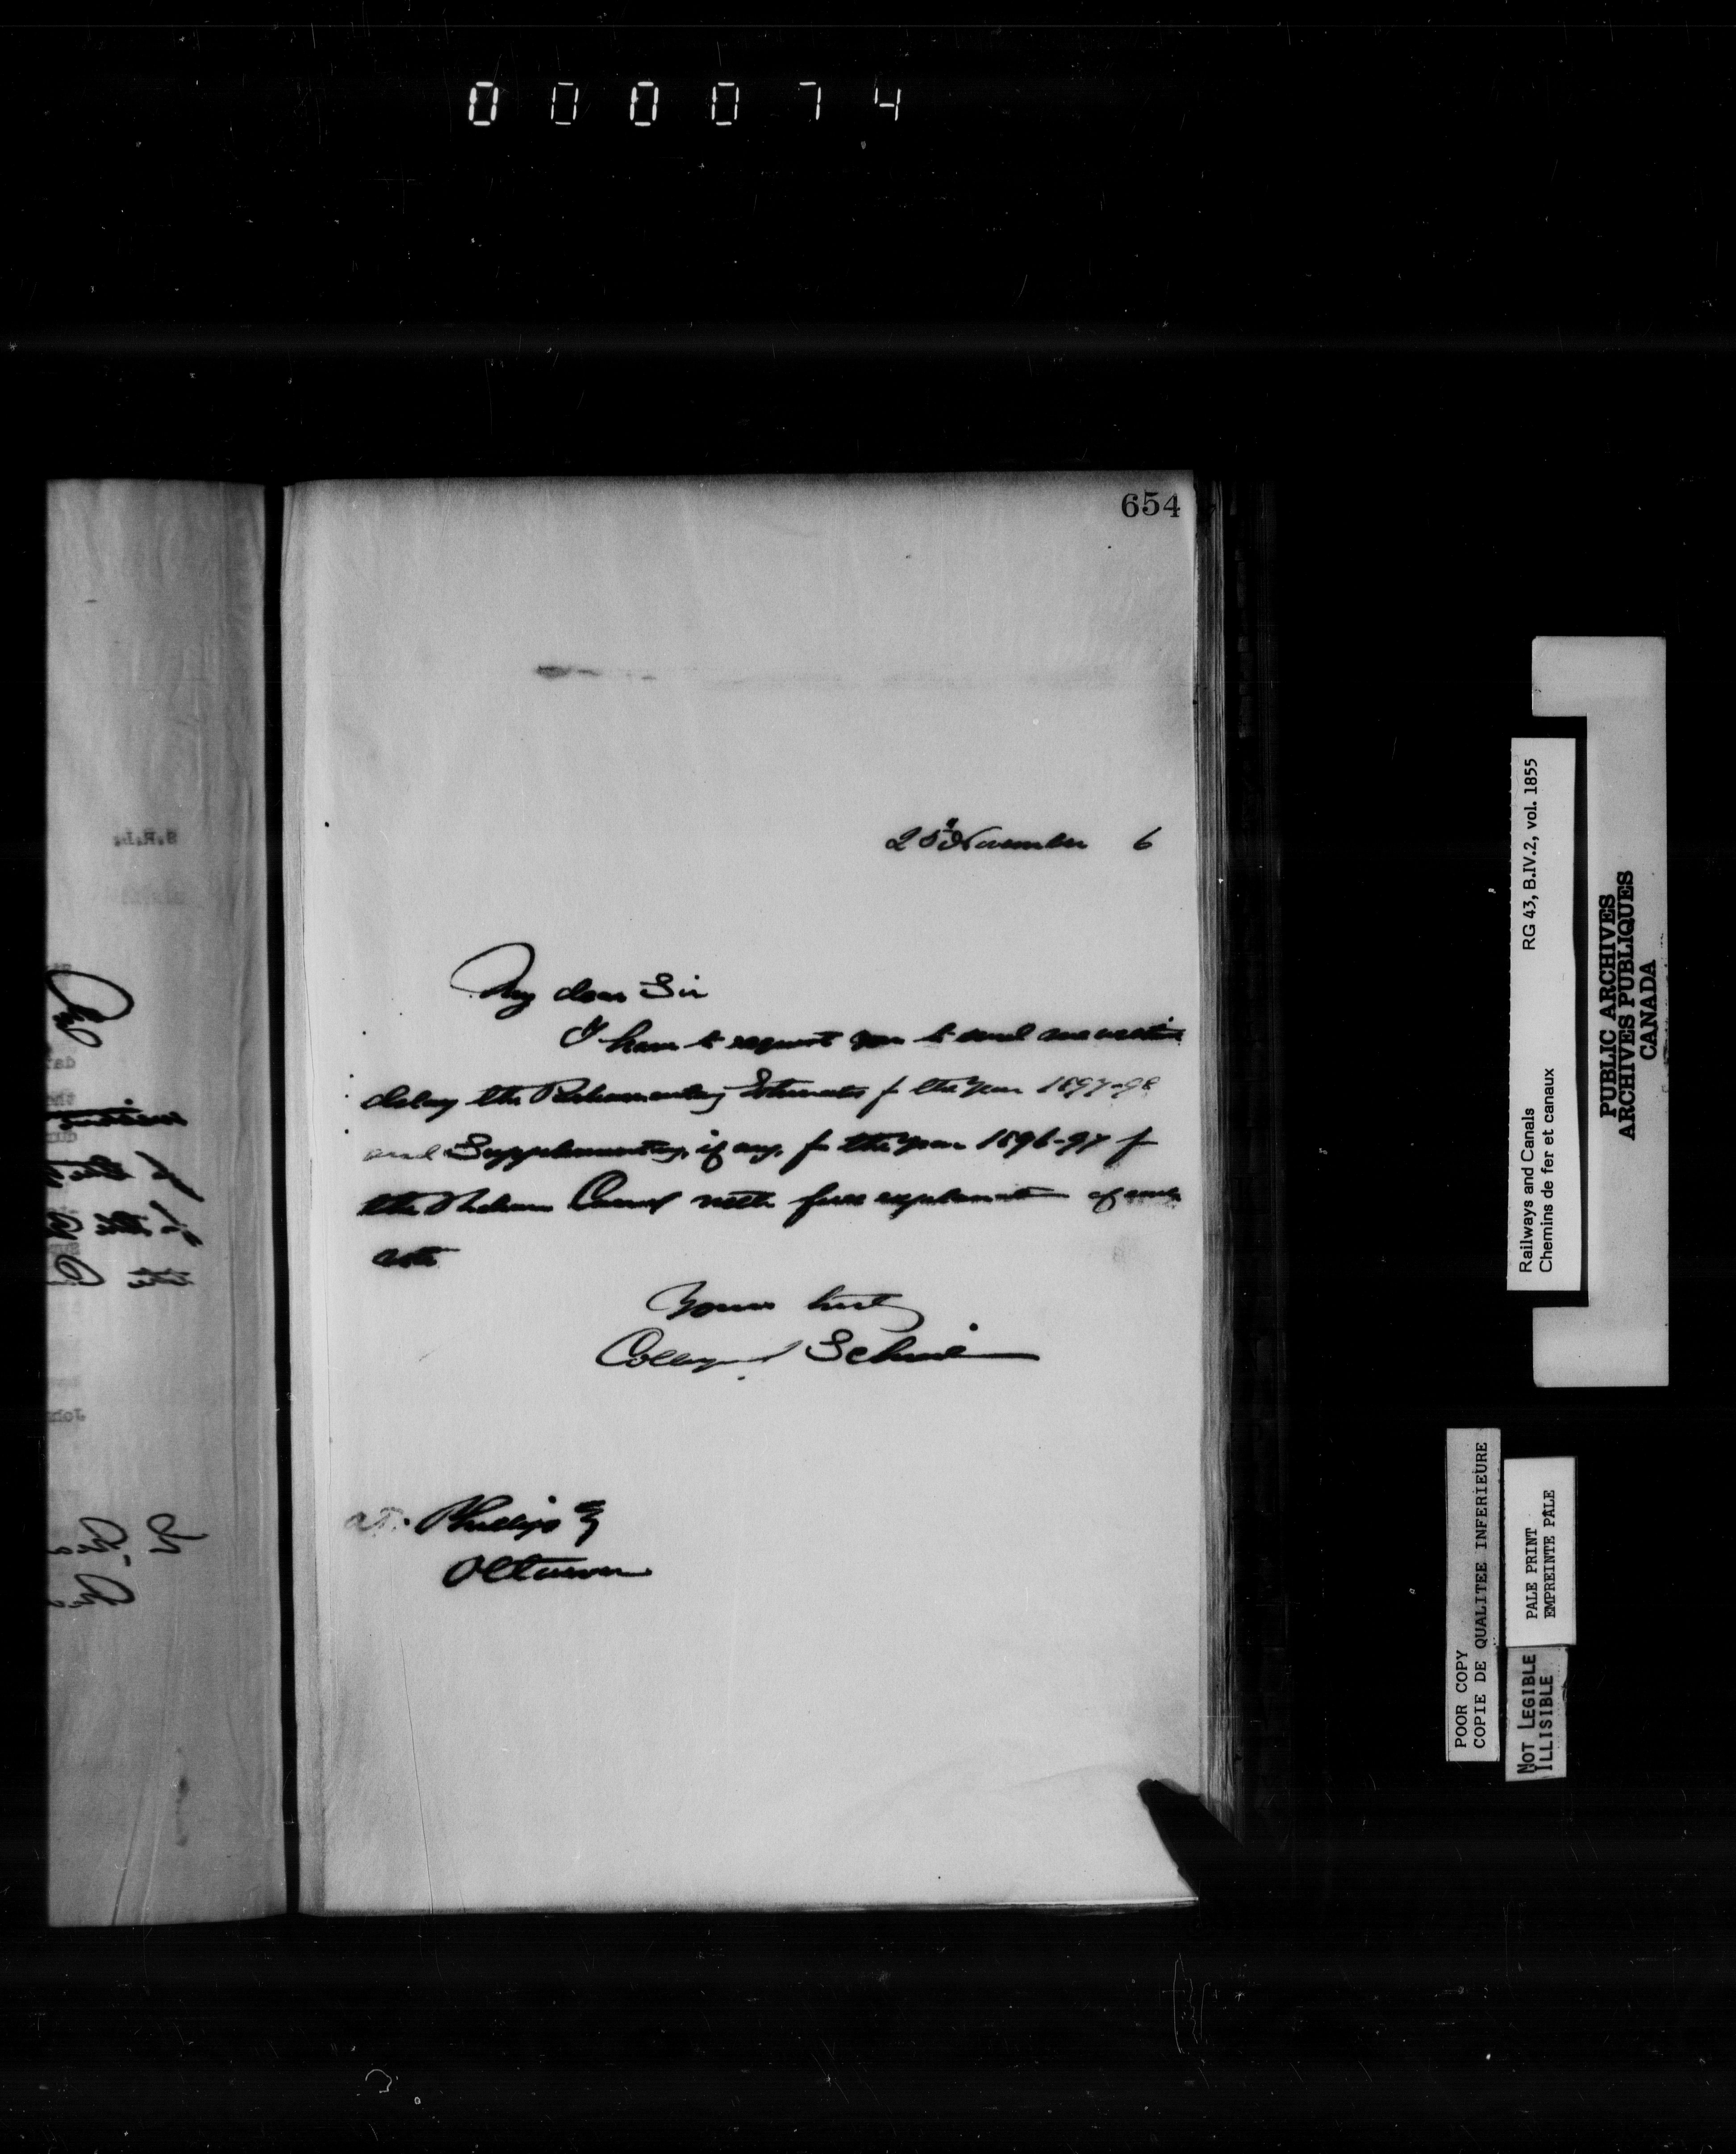 000074
654
25th November 6
My dear Sir
I have to request you to send me without
delay the Parliamentary Estimates for the year 1897-98
and Supplementary, if any, for the year 1896-97 for
the Canal with full explanation of each
vote
Yours truly
Collingwood Schreiber
Phillips Esq
Ottawa
Railways and Canals RG 43, B.IV.2, vol. 1855
Chemins de fer et canaux
PUBLIC ARCHIVES
ARCHIVES PUBLIQUES
CANADA
POOR COPY
COPIE DE QUALITEE INFERIEURE
PALE PRINT
EMPREINTE PALE
NOT LEGIBLE
ILLISIBLE